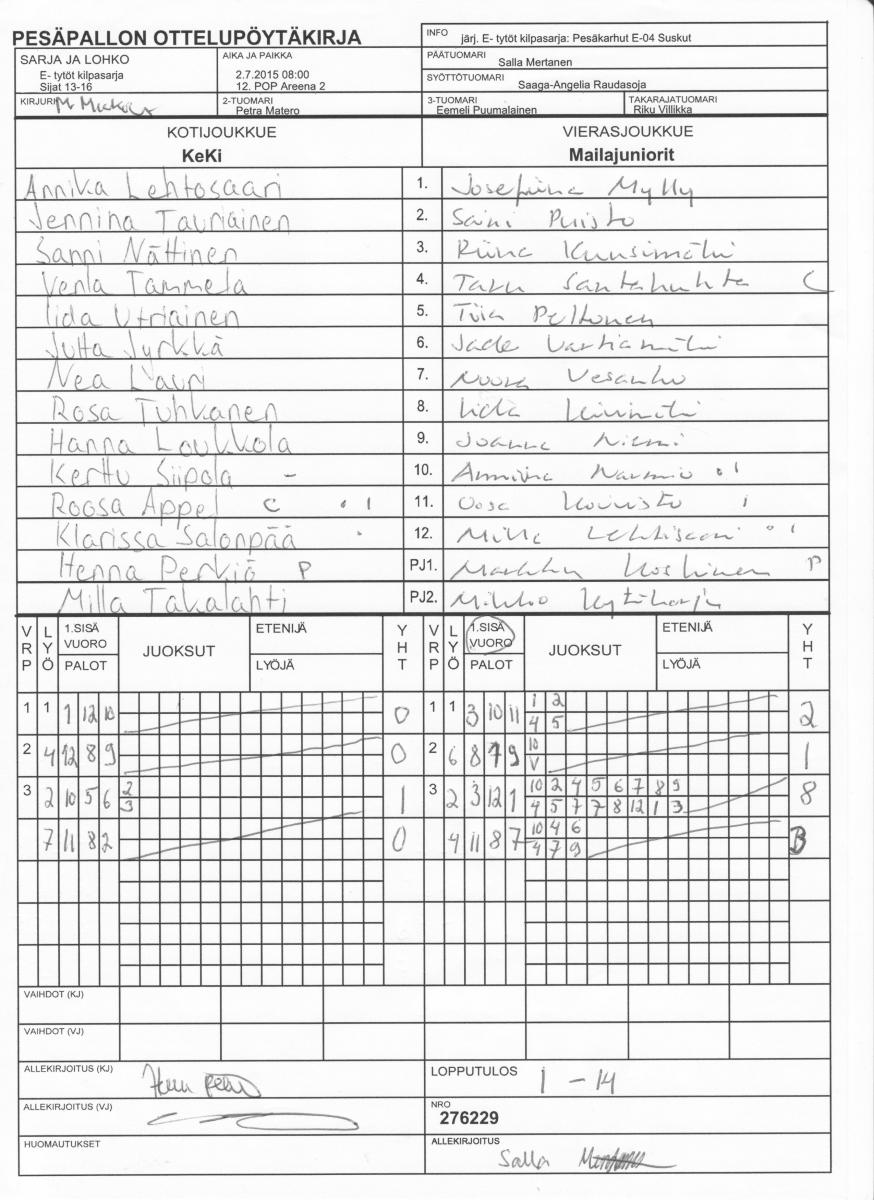 PESÄPALLON OTTELUPÖYTÄKIRJA
INFO järj. E- tytöt kilpasarja: Pesäkarhut E-04 Suskut
SARJA JA LOHKO
E- tytöt kilpasarja
Sijat 13-16
AIKA JA PAIKKA
2.7.2015 08:00
12. POP Areena 2
PÄÄTUOMARI Salla Mertanen
SYÖTTÖTUOMARI Saaga-Angelia Raudasoja
KIRJURI M
2-TUOMARI Petra Matero
3-TUOMARI Eemeli Puumalainen
TAKARAJATUOMARI Riku Villikka
KOTIJOUKKUE VIERASJOUKKUE
KeKi Mailajuniorit
Annika Lehtosaari 1. Josefiina Mylly
Jennina Tauriainen 2. Saini Puisto
Sanni Nättinen 3. Riina Kuusimäki
Venla Tammela 4. Taru Santahuhta C
Iida Utriainen 5. Tiia Peltonen
Jutta Jyrkkä 6. Jade Vartiamäki
Nea Lauri 7. Noora Vesanho
Rosa Tuhkanen 8. Iida
Hanna Loukkola 9. Joanna Niemi
Kerttu Siipola – 10. Anniina Narmio • I
Roosa Appel C • I 11. Oosa Koivisto I
Klarissa Salonpää • 12. Milla Lehtisaari • I
Henna Perkiö P PJ1. Markku Koskinen P
Milla Takalahti PJ2. Mikko Kytöharju
VRP LYÖ 1.SISÄ VUORO PALOT JUOKSUT ETENIJÄ LYÖJÄ YHT VRP LYÖ 1.SISÄ VUORO PALOT JUOKSUT ETENIJÄ LYÖJÄ YHT
1 1 1 12 10 0 1 1 3 10 11 1 2 2
4 5
2 4 12 8 9 0 2 6 8 7 9 10 1
V
3 2 10 5 6 2 1 3 2 3 12 1 10 2 4 5 6 7 8 9 8
3 4 5 7 7 8 12 1 3
7 11 8 2 0 4 11 8 7 10 4 6 3
4 7 9
VAIHDOT (KJ)
VAIHDOT (VJ)
ALLEKIRJOITUS (KJ) LOPPUTULOS 1 – 14
ALLEKIRJOITUS (VJ) NRO
276229
HUOMAUTUKSET ALLEKIRJOITUS
Salla